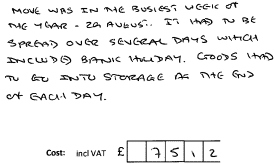 MOVE WAS IN THE BUSIEST WEEK OF
THE YEAR - 29 AUGUST. IT HAD TO BE
SPREAD OVER SEVERAL DAYS WHICH
INCLUDED BANK HOLIDAY. GOODS HAD
TO GO INTO STORAGE AT THE END
OF EACH DAY.
Cost: incl VAT £ 7 5 1 2